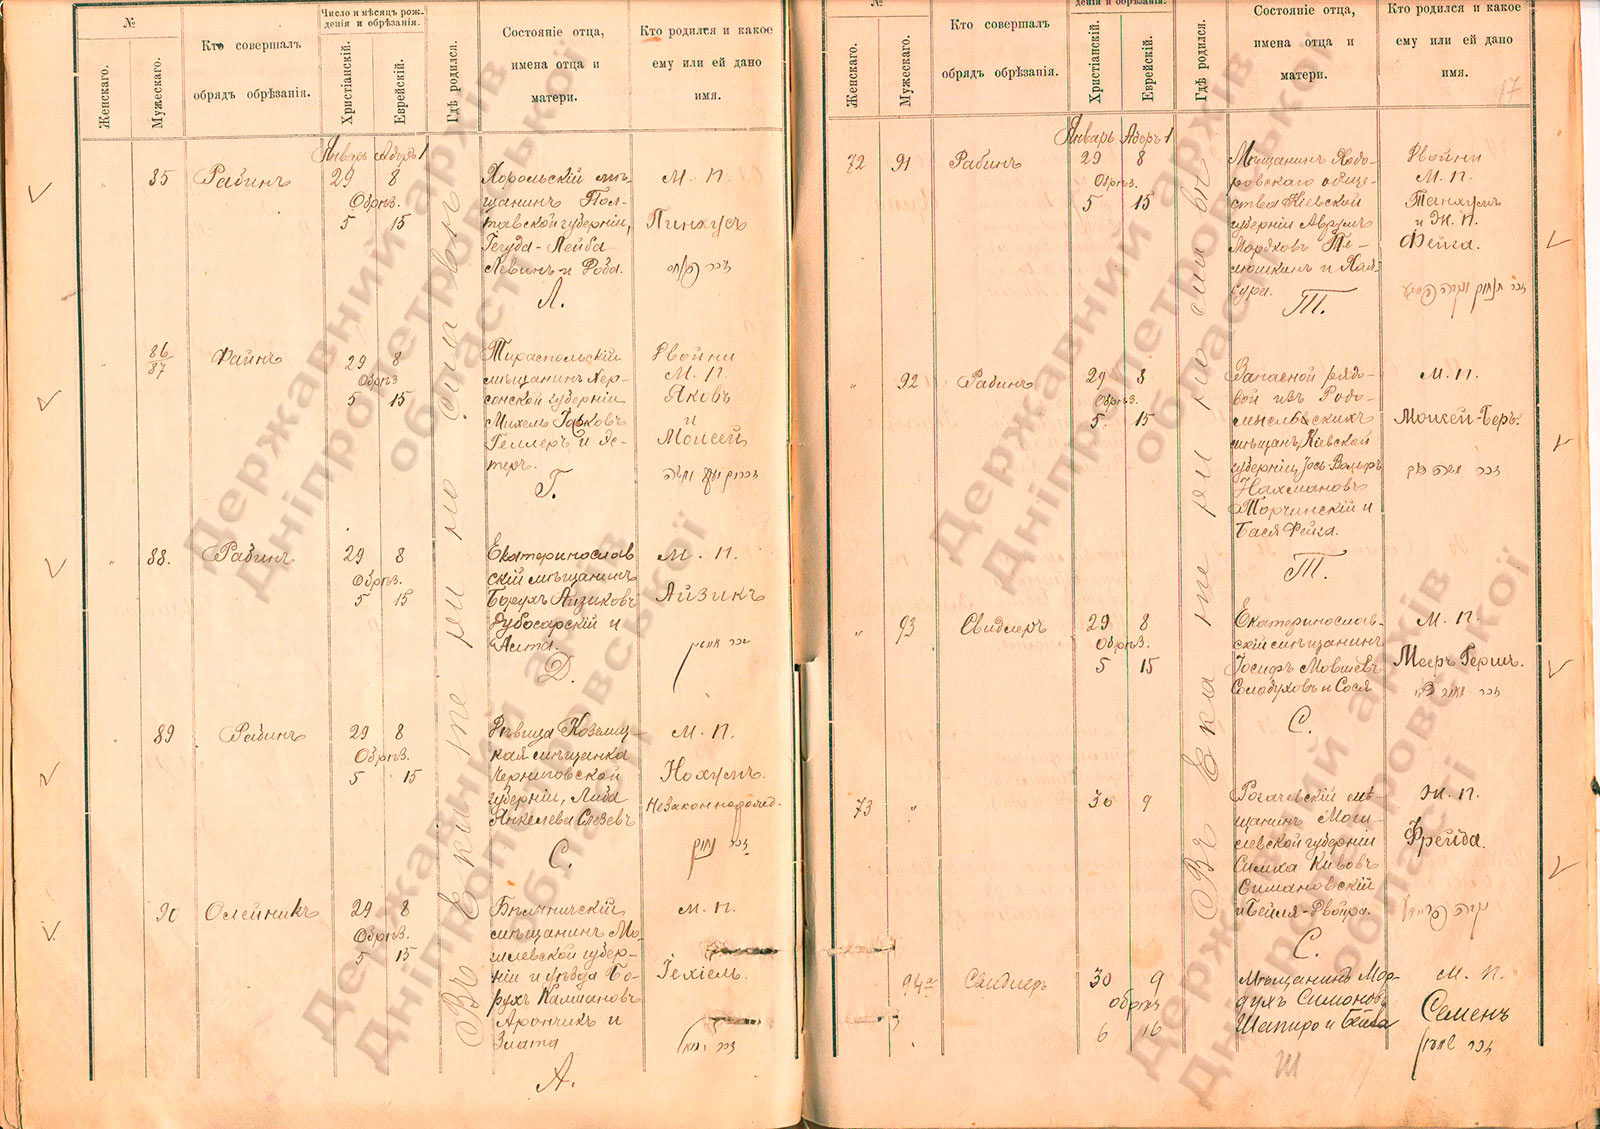 №
Женскаго.
Мужескаго.
Кто совершалъ
обрядъ обрѣзанія.
Число и мѣсяцъ рож-
денія и обрѣзанія.
Христіанскій.
Еврейскій.
Гдѣ родился.
Состояніе отца,
имена отца и
матери.
Кто родился и какое
ему или ей дано
имя.
Январь Адоръ 1
" 85 Рабинъ 29 8
Обрѣз.
5 15
Хорольскій мѣ-
щанинъ Пол-
тавской губерніи,
Іегуда-Лейба
Левинъ и Рода.
Л.
М. П.
Пинхусъ
86
87
Файнъ 29 8
Обрѣз
5 15
Тираспольскій
мѣщанинъ Хер-
сонской губерніи
Михель
Геллеръ и Эс-
теръ.
Г.
Двойни
М. П.
Яковъ
и
Моисей
" 88. Рабинъ 29 8
Обрѣз.
5 15
Екатеринослав
скій мѣщанинъ
Борухъ Айзиковъ
Дубосарскій и
Д.
М. П.
Айзикъ
89 Рабинъ 29 8
Обрѣз.
5 15
Дѣвица
кая мѣщанка
Черниговской
губерніи, Либа
Янкелева
С.
М. П.
Нохумъ.
Незаконнорожд.
90 Олейникъ 29 8
Обрѣз.
5 15
Бѣлыничскій
мѣщанинъ Мо-
гилевской губер-
ніи и уѣзда Бо-
рухъ Калмановъ
Арончикъ и
Злата
А.
М. П.
Іехіель.
Въ Екатеринославѣ
№
Женскаго.
Мужескаго.
Кто совершалъ
обрядъ обрѣзанія.
денія и обрѣзанія.
Христіанскій.
Еврейскій.
Гдѣ родился.
Состояніе отца,
имена отца и
матери.
Кто родился и какое
ему или ей дано
имя.
17
Январь Адоръ 1
72 91 Рабинъ 29 8
Обрѣз.
5 15
Мѣщанинъ Ходо-
ровскаго обще-
ства Кіевской
губерніи Аврумъ
Мордковъ Те-
люшкинъ и Хая-
Сура.
Т.
Двойни
М. П.
Танхумъ
и Ж. П.
Фейга.
" 92 Рабинъ 29 8
Обрѣз.
5 15
Запасной рядо-
вой изъ Радо-
мысльскихъ
мѣщан, Кіевской
губерніи Іось-Вольфъ
Нахмановъ
Торчинскій и
Бася Фейга.
Т.
М. П.
Моисей-Беръ.
" 93 Свидлеръ 29 8
Обрѣз.
5 15
Екатеринослав-
скій мѣщанинъ
Іосифъ Мовшевъ
Солодуховъ и Сося
С.
М. П.
Мееръ Гершъ.
73 " 30 9
Рогачевскій мѣ
щанинъ Моги-
левской губерніи
Симха Кивовъ
Симановскій
и Бейля-Двойра.
С.
Ж. П.
Фрейда.
94а Свидлеръ 30 9
обрѣз
6 16
Мѣщанинъ Мор-
духъ Симоновъ
Шапиро и Бейла
Ш
М. П.
Семенъ
Въ Екатеринославѣ
Державний архів
Дніпропетровської
області